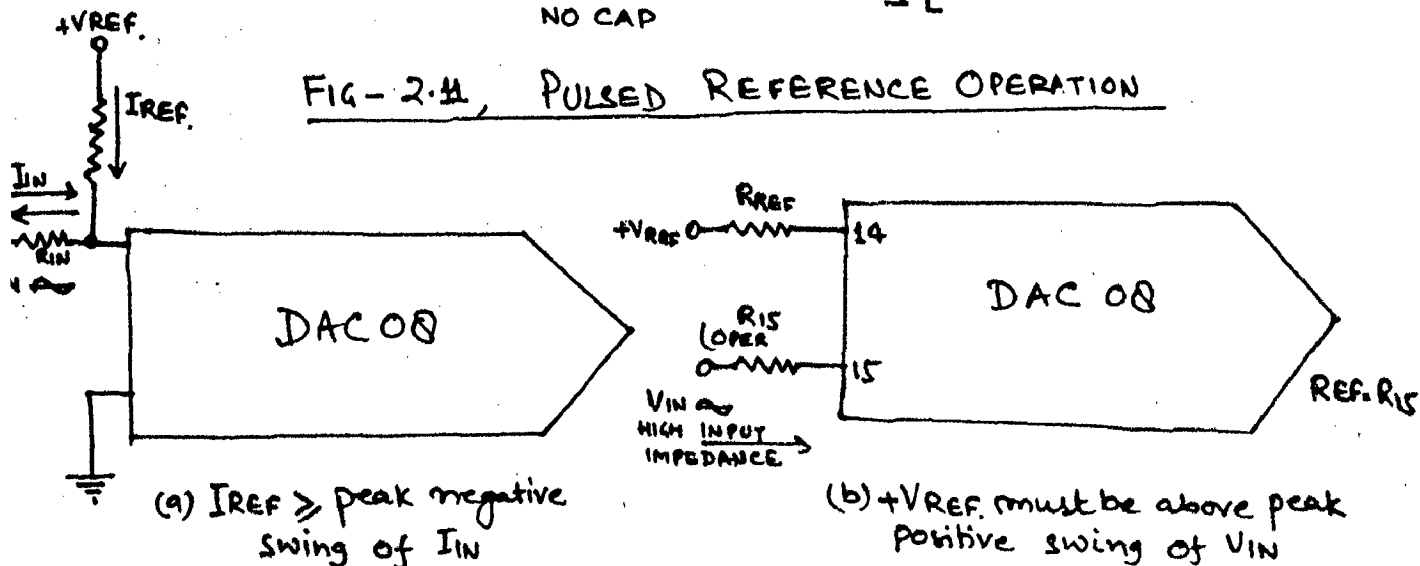 NO CAP
FIG-2.11, PULSED REFERENCE OPERATION
+VREF.
IREF.
IIN
RIN
DAC 08
(a) IREF ≥ peak negative
swing of IIN
RREF
+VREF
14
R15
(OPER
15
VIN
HIGH INPUT
IMPEDANCE
DAC 08
REF=R15
(b) +VREF. must be above peak
positive swing of VIN